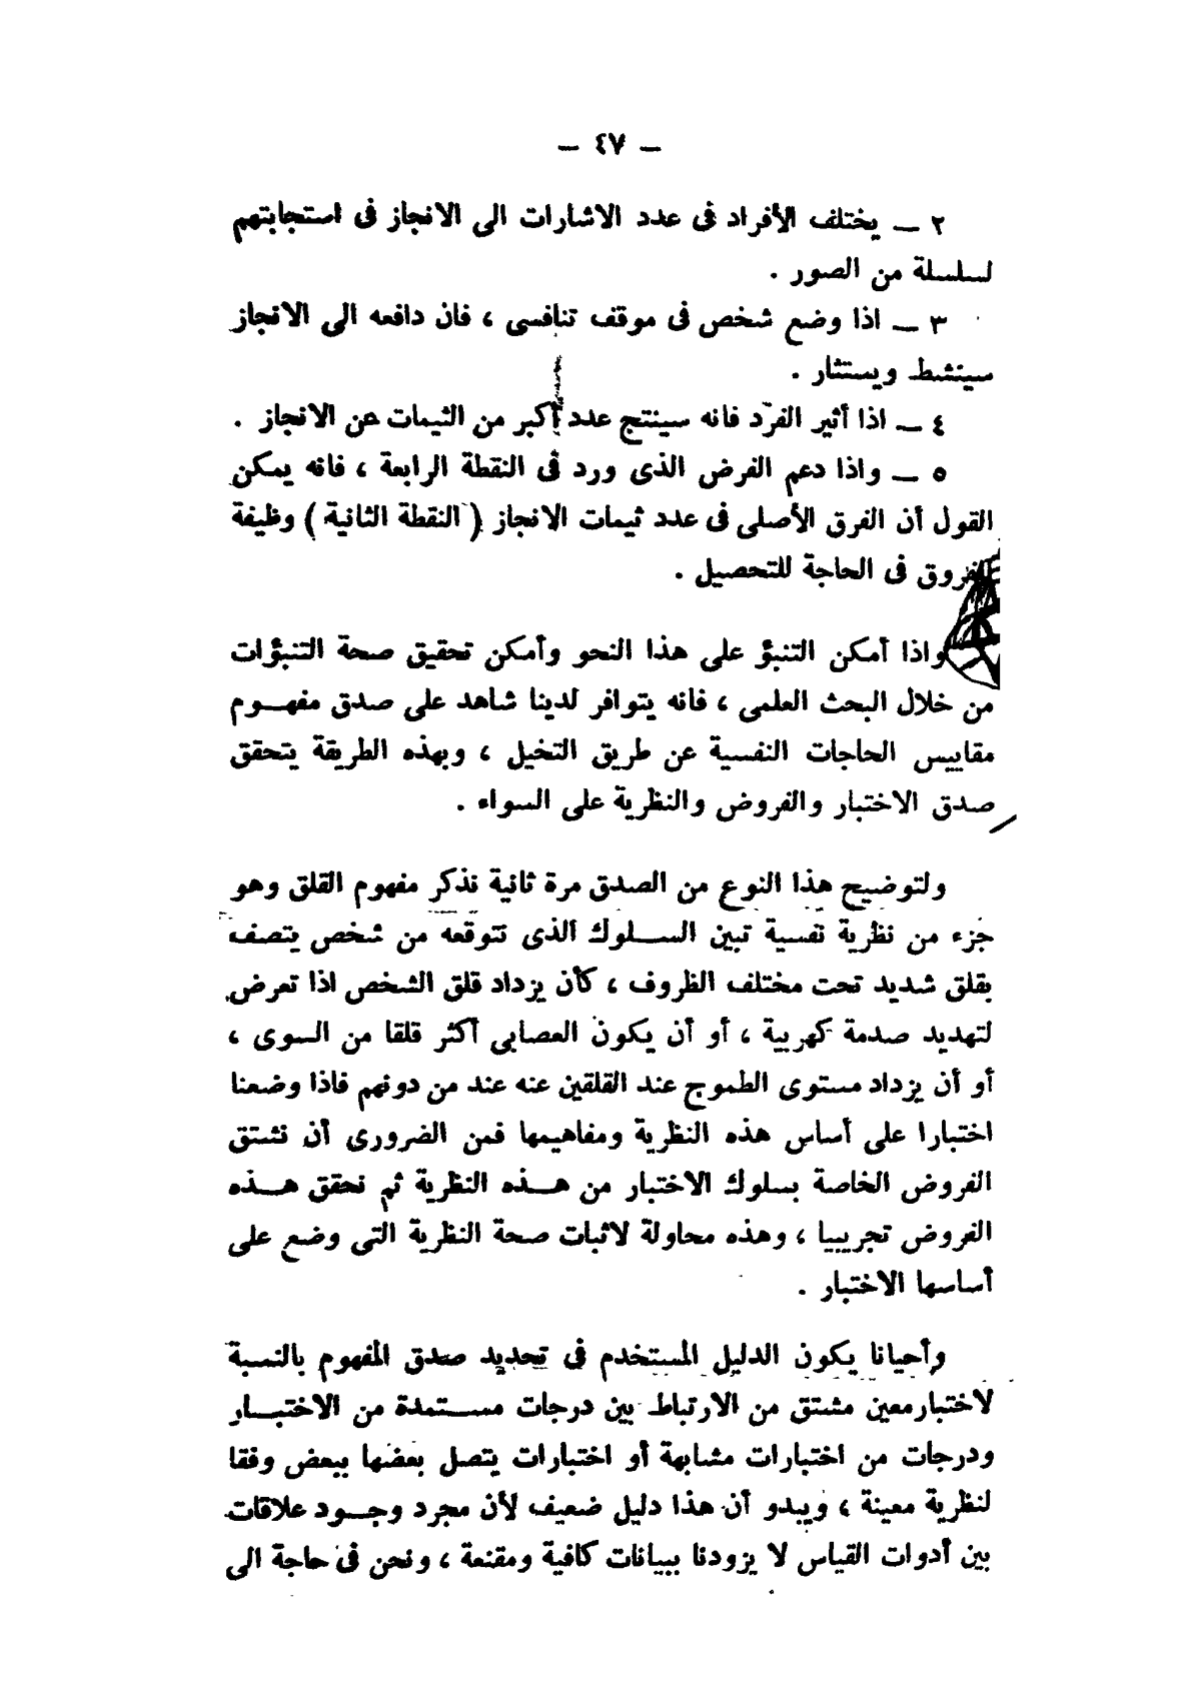 — ٤٧ —
٢ — يختلف الأفراد فى عدد الاشارات الى الانجاز فى استجابتهم
لسلسلة من الصور .
٣ — اذا وضع شخص فى موقف تنافسى ، فان دافعه الى الانجاز
سينشط ويستثار .
٤ — اذا أثير الفرد فانه سينتج عدد أكبر من الثيمات عن الانجاز .
٥ — واذا دعم الفرض الذى ورد فى النقطة الرابعة ، فانه يمكن
القول أن الفرق الأصلى فى عدد ثيمات الانجاز ( النقطة الثانية ) وظيفة
فى الحاجة للتحصيل .
واذا أمكن التنبؤ على هذا النحو وأمكن تحقيق صحة التنبؤات
من خلال البحث العلمى ، فانه يتوافر لدينا شاهد على صدق مفهوم
مقاييس الحاجات النفسية عن طريق التخيل ، وبهذه الطريقة يتحقق
صدق الاختبار والفروض والنظرية على السواء .
ولتوضيح هذا النوع من الصدق مرة ثانية نذكر مفهوم القلق وهو
جزء من نظرية نفسية تبين السلوك الذى نتوقعه من شخص يتصف
بقلق شديد تحت مختلف الظروف ، كأن يزداد قلق الشخص اذا تعرض
لتهديد صدمة كهربية ، أو أن يكون العصابى أكثر قلقا من السوى ،
أو أن يزداد مستوى الطموح عند القلقين عنه عند من دونهم فاذا وضعنا
اختبارا على أساس هذه النظرية ومفاهيمها فمن الضرورى أن نشتق
الفروض الخاصة بسلوك الاختبار من هذه النظرية ثم نحقق هذه
الفروض تجريبيا ، وهذه محاولة لاثبات صحة النظرية التى وضع على
أساسها الاختبار .
وأحيانا يكون الدليل المستخدم فى تحديد صدق المفهوم بالنسبة
لاختبار معين مشتق من الارتباط بين درجات مستمدة من الاختبار
ودرجات من اختبارات مشابهة أو اختبارات يتصل بعضها ببعض وفقا
لنظرية معينة ، ويبدو أن هذا دليل ضعيف لأن مجرد وجود علاقات
بين أدوات القياس لا يزودنا ببيانات كافية ومقنعة ، ونحن فى حاجة الى